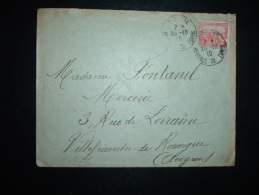 Madame Fontanel
Mercerie
3, Rue de Lorraine
Villefranche de Rouergue
(Aveyron)